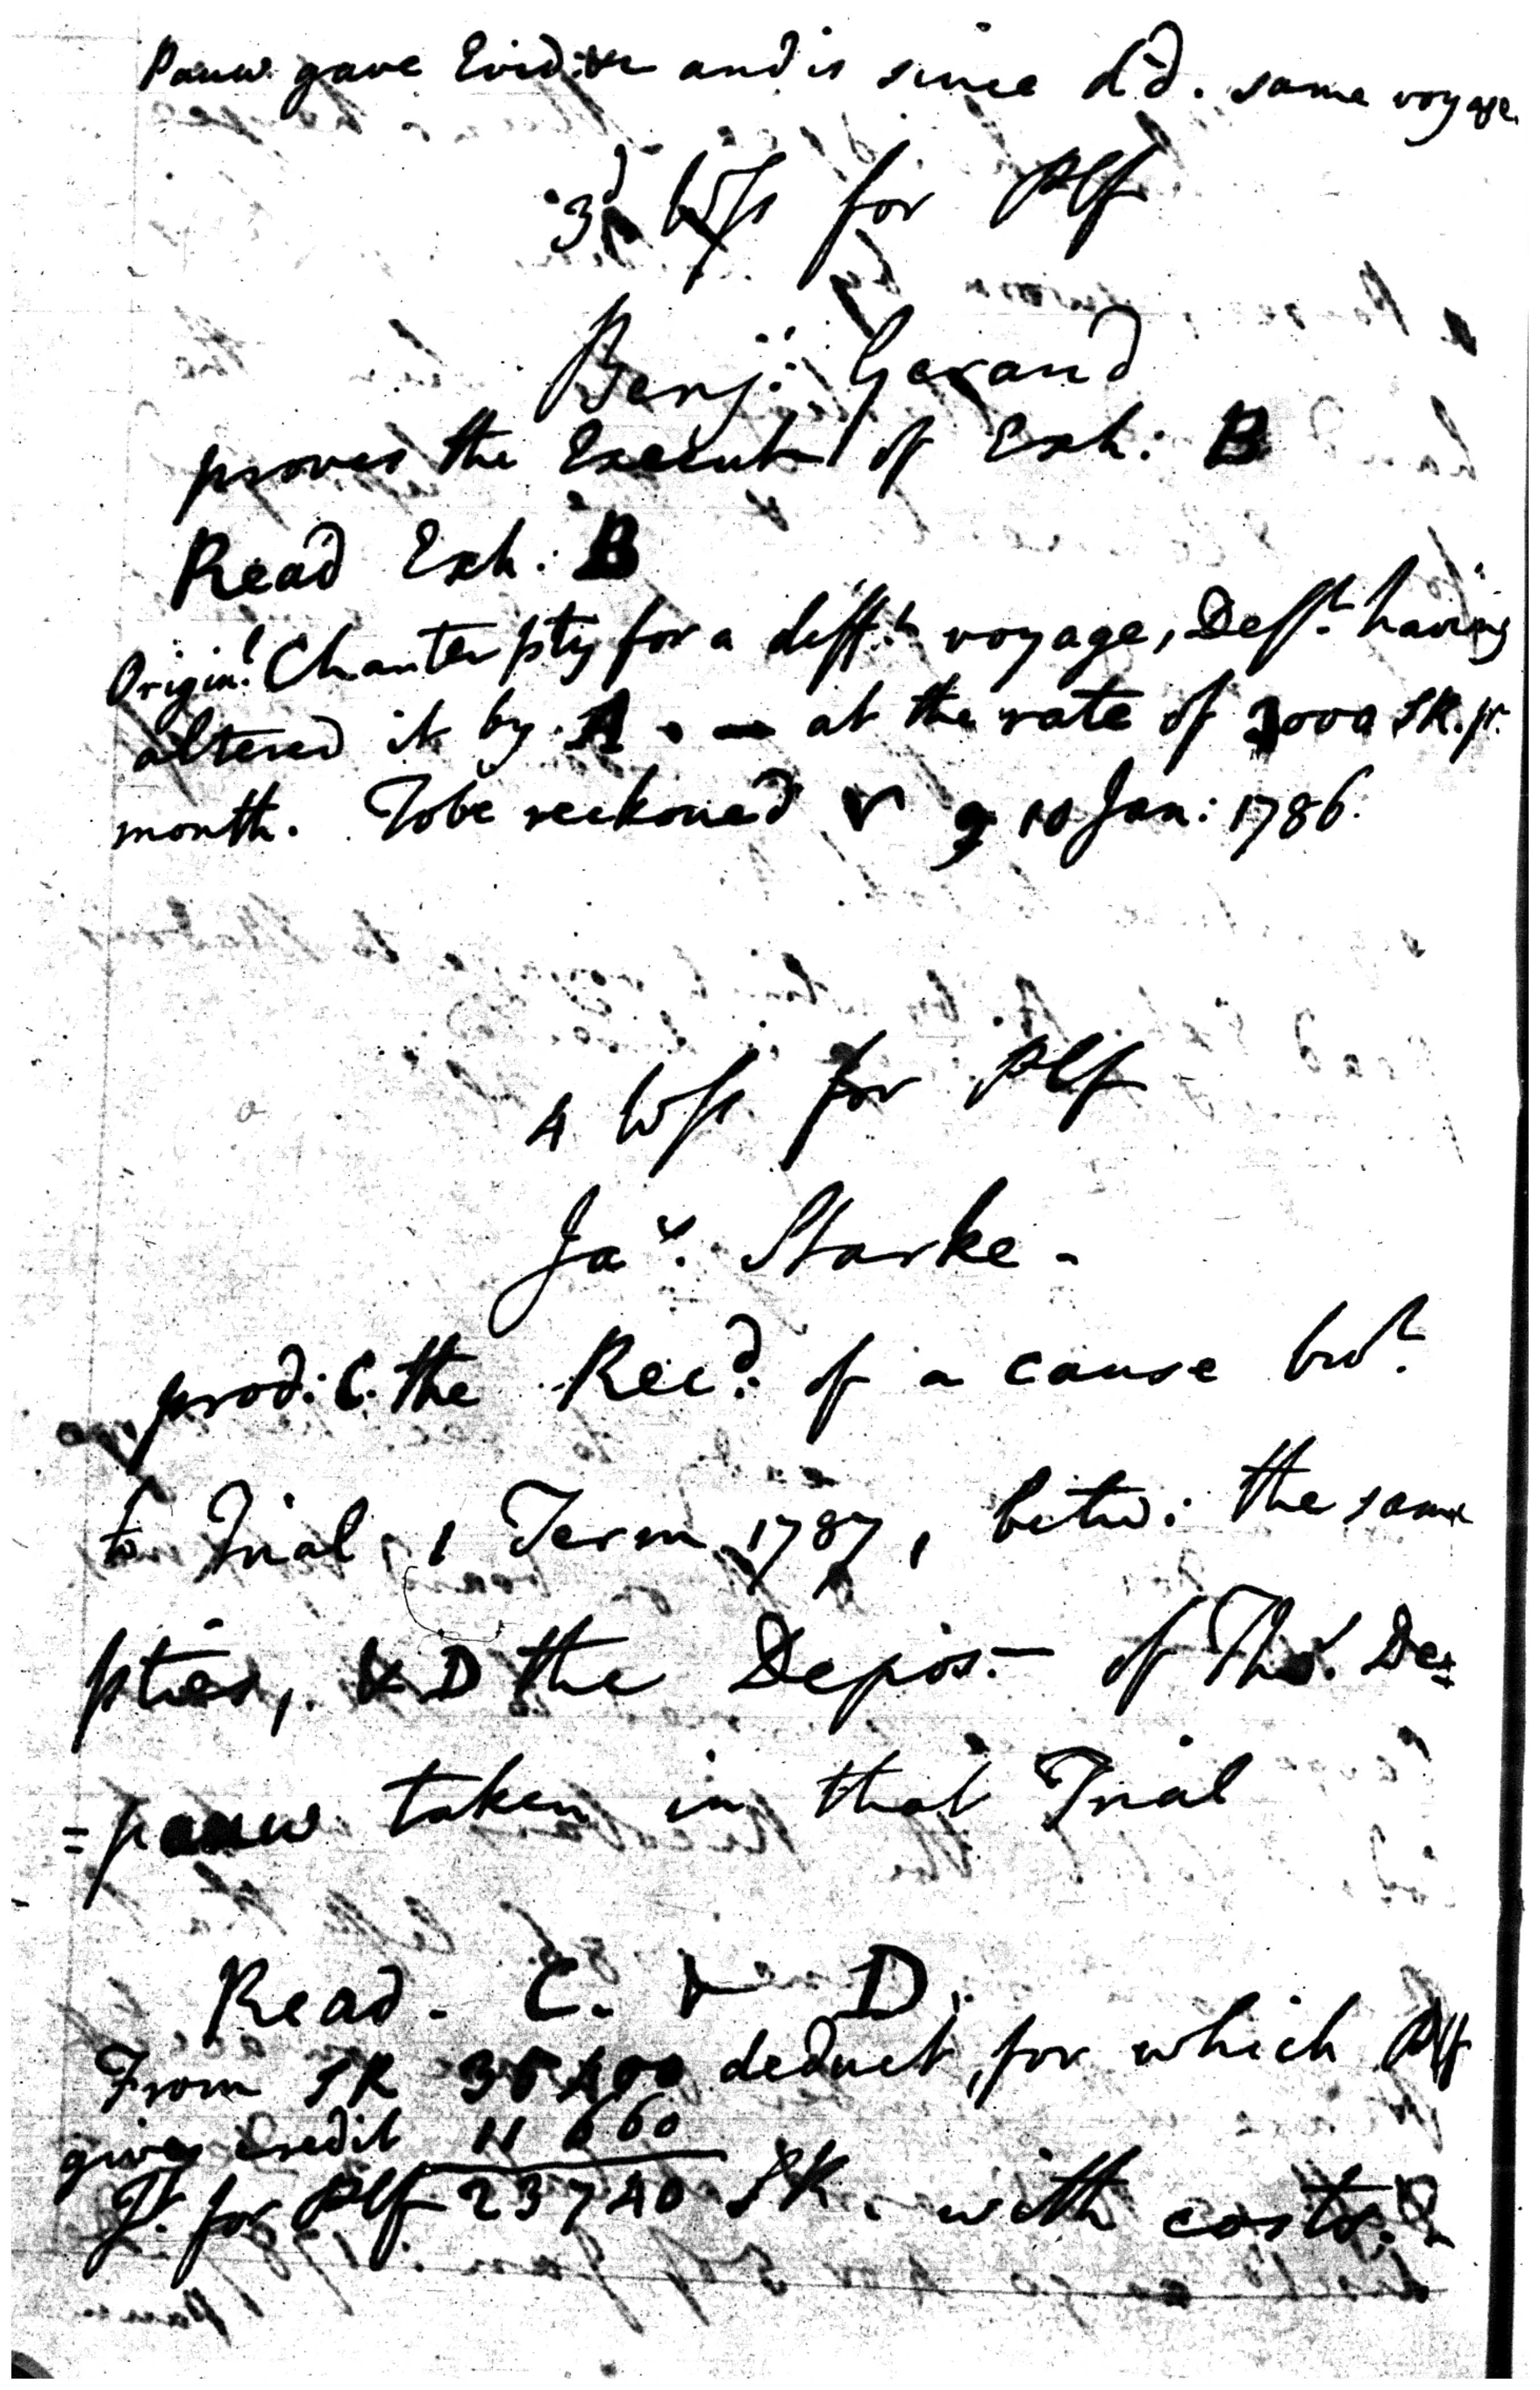 Pauw gave Evid: and is since d'd. same voyage.
3d Wss for Plf
Benj: Gerand
proves the Execut of Exh: B
Read Exh: B
Origin! Charter pty for a difft voyage, Deft having
altered it by A. — at the rate of 3000 SR. pr.
month. To be reckoned 10 Jan: 1786.
4 Wss for Plf
Jas. Starke -
prod: C. the Recd. of a cause brot.
to Trial, 1 Term 1787, betw: the same
pties, & D the Depos:— of Thos. De=
=pauw taken in that Trial
Read - C. & D.
From SR 35400 deduct, for which Plf
gives credit 11 660
Jt. for Plf 23740 SR. with costs.